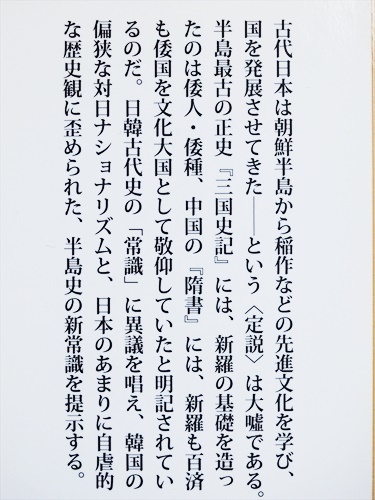 古代日本は朝鮮半島から稲作などの先進文化を学び、
国を発展させてきた――という〈定説〉は大嘘である。
半島最古の正史『三国史記』には、新羅の基礎を造っ
たのは倭人・倭種、中国の『隋書』には、新羅も百済
も倭国を文化大国として敬仰していたと明記されてい
るのだ。日韓古代史の「常識」に異議を唱え、韓国の
偏狭な対日ナショナリズムと、日本のあまりに自虐的
な歴史観に歪められた、半島史の新常識を提示する。